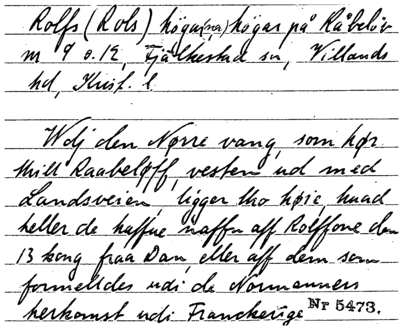 Rolfs (Rols) högar(na) högar på Råbelöv
nr 9 o. 12, Fjälkestad sn, Villands
hd, Krist. l.
Wdj den Nørre vang, som hør
thill Raabeløff, vesten ud med
Landsveien, ligger tho høie, huad
heller de haffue naffn aff Rolffone den
13 kong fraa Dan, eller aff dem som
formeldes udi de Normanners
herkomst udi Franckerige Nr 5473.